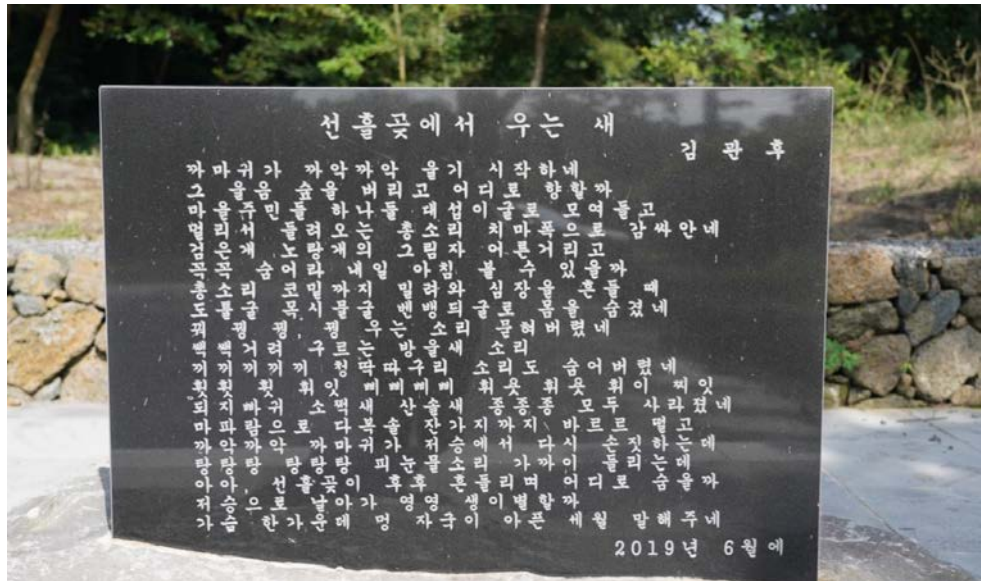 선흘곶에서 우는 새
김관후
까마귀가 까악까악 울기 시작하네
그 울음 숲을 버리고 어디로 향할까
마을주민들 하나둘 대섭이굴로 모여들고
멀리서 들려오는 총소리 치마폭으로 감싸안네
검은개 노랑개의 그림자 어른거리고
꼭꼭 숨어라 내일 아침 볼 수 있을까
총소리 코밑까지 밀려와 심장을 흔들 때
도틀굴 목시물굴 벤뱅듸굴로 몸을 숨겼네
꿩 꿩꿩, 꿩 우는 소리 묻혀버렸네
짹짹거려 구르는 방울새 소리
끼끼끼끼끼 청딱따구리 소리도 숨어버렸네
횟횟 횟 휘잇 삐삐삐삐 휘욧 휘욧 휘이 찌잇
되지빠귀 소쩍새 산솔새 종종종 모두 사라졌네
마파람으로 다복솔 잔가지까지 바르르 떨고
까악까악 까마귀가 저승에서 다시 손짓하는데
탕탕탕 탕탕탕 피눈물소리 가까이 들리는데
아아, 선흘곶이 후후 흔들리며 어디로 숨을까
저승으로 날아가 영영 생이별할까
가슴 한가운데 멍 자국이 아픈 세월 말해주네
2019년 6월에